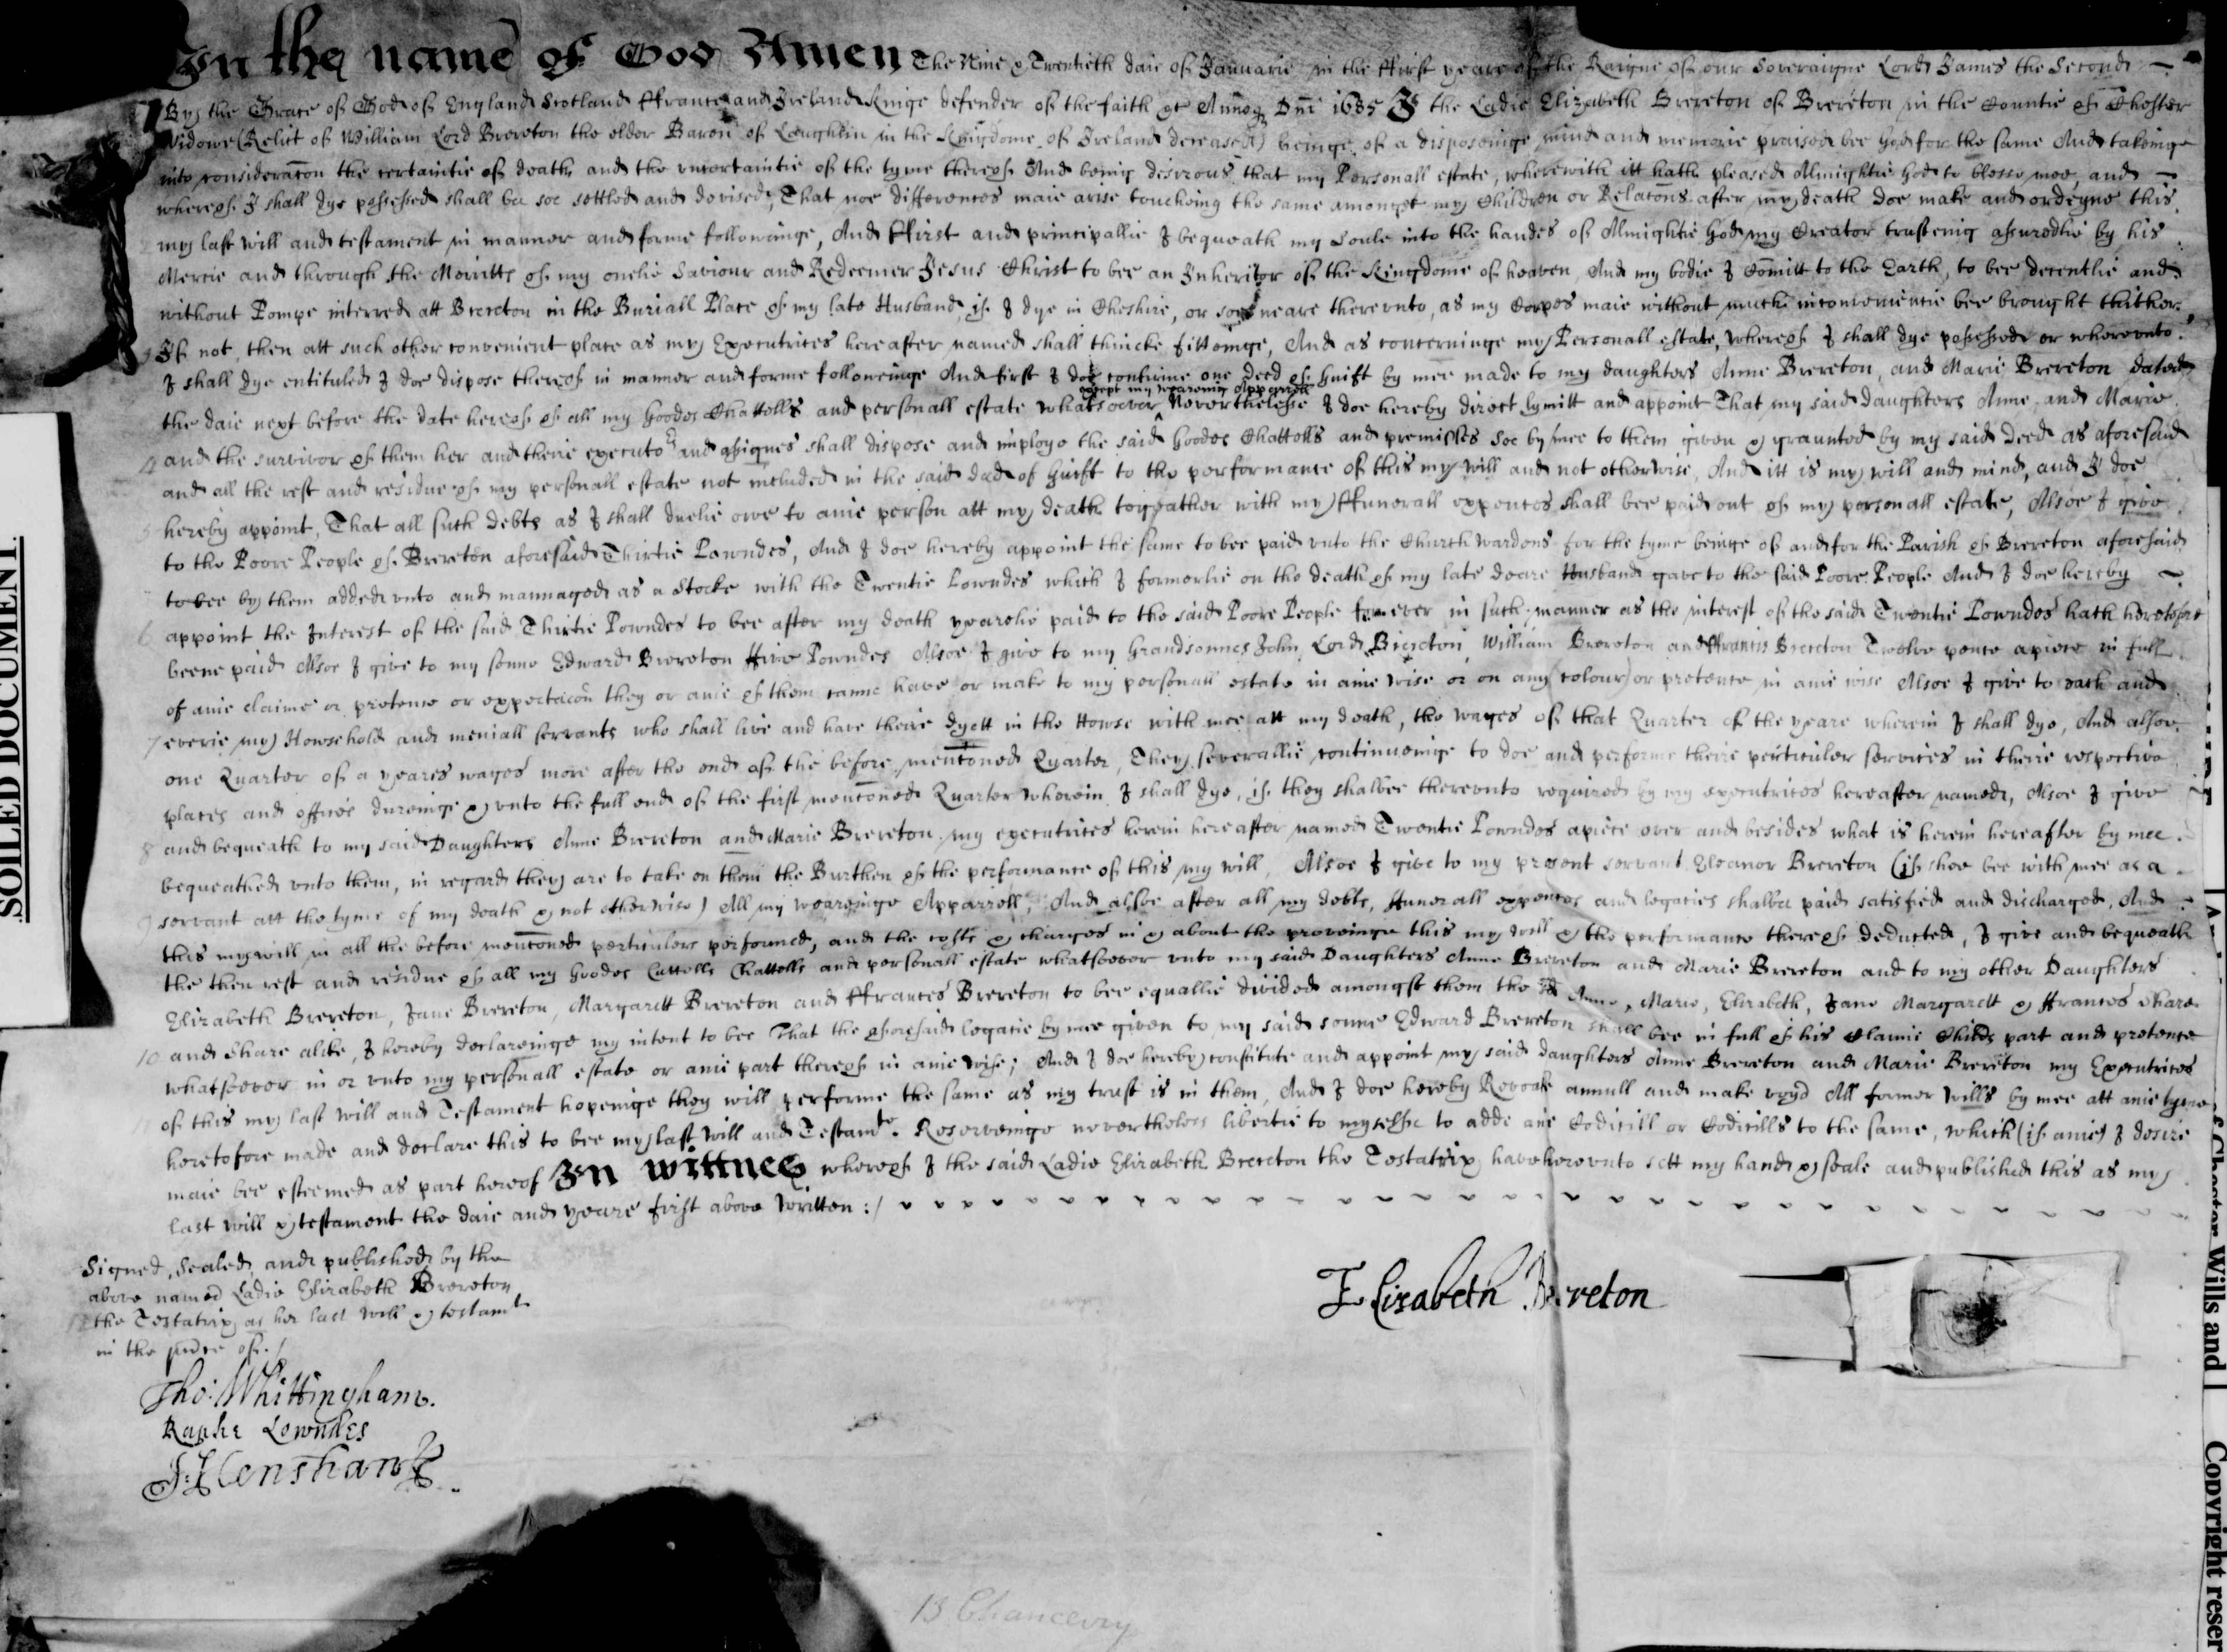 In the name of God Amen The Nine & Twentieth daie of Januarie in the ffirst yeare of the Raigne of our Soveraigne Lord James the Second
By the Grace of God of England Scotland ffrance and Ireland Kinge defender of the faith &c Annoq Dni 1685 I the Ladie Elizabeth Brereton of Brereton in the Countie of Chester
Widowe (Relict of William Lord Brereton the elder Baron of Loughlin in the Kingdome of Ireland deceased) beinge of a disposeinge mind and memorie praised bee God for the same And takeinge
into consideracon the certaintie of death and the uncertaintie of the tyme thereof And being desirous that my Personall estate, wherewith itt hath pleased Almightie God to blesse mee, and
whereof I shall dye possessed shall be soe settled and devised, That noe differences maie arise toucheing the same amongst my Children or Relacons after my death doe make and ordeyne this
my last will and testament in manner and forme followeinge, And ffirst and principallie I bequeath my Soule into the handes of Almightie God my Creator trusteing assuredlie by his
Mercie and through the Merritts of my onelie Saviour and Redeemer Jesus Christ to bee an Inheritor of the Kingdome of heaven And my bodie I Comitt to the Earth, to bee decentlie and
without Pompe interred att Brereton in the Buriall Place of my late Husband, if I dye in Cheshire, or soe neare thereunto, as my Corpes maie without much inconvenientie bee brought thither,
If not, then att such other convenient place as my Executrices hereafter named shall thincke fitteinge, And as concerninge my Personall estate, whereof I shall dye possessed or whereunto
I shall dye entituled I doe dispose thereof in manner and forme followeinge And first I doe confirme one deed of Guift by mee made to my daughters Anne Brereton, and Marie Brereton dated
except my weareing Apparrell
the daie next before the date hereof of all my Goodes Chattells and personall estate whatsoever Neverthelesse I doe hereby direct lymitt and appoint That my said daughters Anne, and Marie
4 and the survivor of them her and theire executors and assignes shall dispose and imploye the said Goodes Chattells and premisses soe by mee to them given & graunted by my said deed as aforesaid
and all the rest and residue of my personall estate not included in the said deed of Guift to the performance of this my will and not otherwise, And itt is my will and mind, and I doe
5 hereby appoint, That all such debts as I shall duelie owe to anie person att my death togeather with my ffunerall expences shall bee paid out of my personall estate, Alsoe I give
to the Poore People of Brereton aforesaid Thirtie Powndes, And I doe hereby appoint the same to bee paid unto the Church wardens for the tyme beinge of and for the Parish of Brereton aforesaid
to bee by them added unto and mannaged as a Stocke with the Twentie Powndes which I formerlie on the death of my late deare Husband gave to the said Poore People And I doe hereby
6 appoint the Interest of the said Thirtie Powndes to bee after my death yearelie paid to the said Poore People for ever in such manner as the interest of the said Twentie Powndes hath heretofore
beene paid Alsoe I give to my sonne Edward Brereton ffive Powndes Alsoe I give to my Grandsonnes John Lord Brereton, William Brereton and ffrancis Brereton Twelve pence apiece in full
of anie claime or pretence or expectacon they or anie of them canne have or make to my personall estate in anie wise or on any colour or pretence in anie wise Alsoe I give to each and
7 everie my Howsehold and meniall servants who shall live and have theire dyett in the Howse with mee att my death, the wages of that Quarter of the yeare wherein I shall dye, And alsoe
one Quarter of a yeares wages more after the end of the before mentoned Quarter, They severallie continueinge to doe and performe theire perticuler services in theire respective
places and offices dureinge & unto the full end of the first mentoned Quarter wherein I shall dye, if they shalbee thereunto required by my executrices hereafter named, Alsoe I give
8 and bequeath to my said Daughters Anne Brereton and Marie Brereton my executrices herein hereafter named Twentie Powndes apiece over and besides what is herein hereafter by mee
bequeathed unto them, in regard they are to take on them the Burthen of the performance of this my will, Alsoe I give to my present servant Eleanor Brereton (if shee bee with mee as a
9 servant att the tyme of my death & not otherwise) All my weareinge Apparrell, And alsoe after all my debts, ffunerall expences and legacies shalbee paid satisfied and discharged, And
this my will in all the before mentoned perticulers performed, and the costs & charges in & about the proveinge this my will & the performance thereof deducted, I give and bequeath
the then rest and residue of all my Goodes Cattells Chattells and personall estate whatsoever unto my said Daughters Anne Brereton and Marie Brereton and to my other Daughters
Elizabeth Brereton, Jane Brereton, Margarett Brereton and ffrances Brereton to bee equallie divided amongst them the sd Anne, Marie, Elizabeth, Jane Margarett & ffrances share
10 and share alike, I hereby declareinge my intent to bee That the aforesaid legacie by mee given to my said sonne Edward Brereton shall bee in full of his Claime Childs part and pretence
whatsoever in or unto my personall estate or anie part thereof in anie wise; And I doe hereby constitute and appoint my said daughters Anne Brereton and Marie Brereton my Executrices
11 of this my last will and Testament hopeinge they will performe the same as my trust is in them, And I doe hereby Revoak annull and make voyd All former Wills by mee att anie tyme
heretofore made and declare this to bee my last will and Testamt. Reserveinge neverthelesse libertie to myselfe to adde anie Codicill or Codicills to the same, which (if anie) I desire
maie bee esteemed as part hereof In wittnes whereof I the said Ladie Elizabeth Brereton the Testatrix have hereunto sett my hand & seale and published this as my
last will & testament the daie and yeare first above written :/
Signed, Sealed and published by the
above named Ladie Elizabeth Brereton
the Testatrix as her last will & testamt
in the pnce of:/
Elizabeth Brereton
Tho: Whittingham.
Raphe Lowndes
J: Henshaw
13 Chancery
SOILED DOCUMENT.
Chester Wills and
Copyright reser